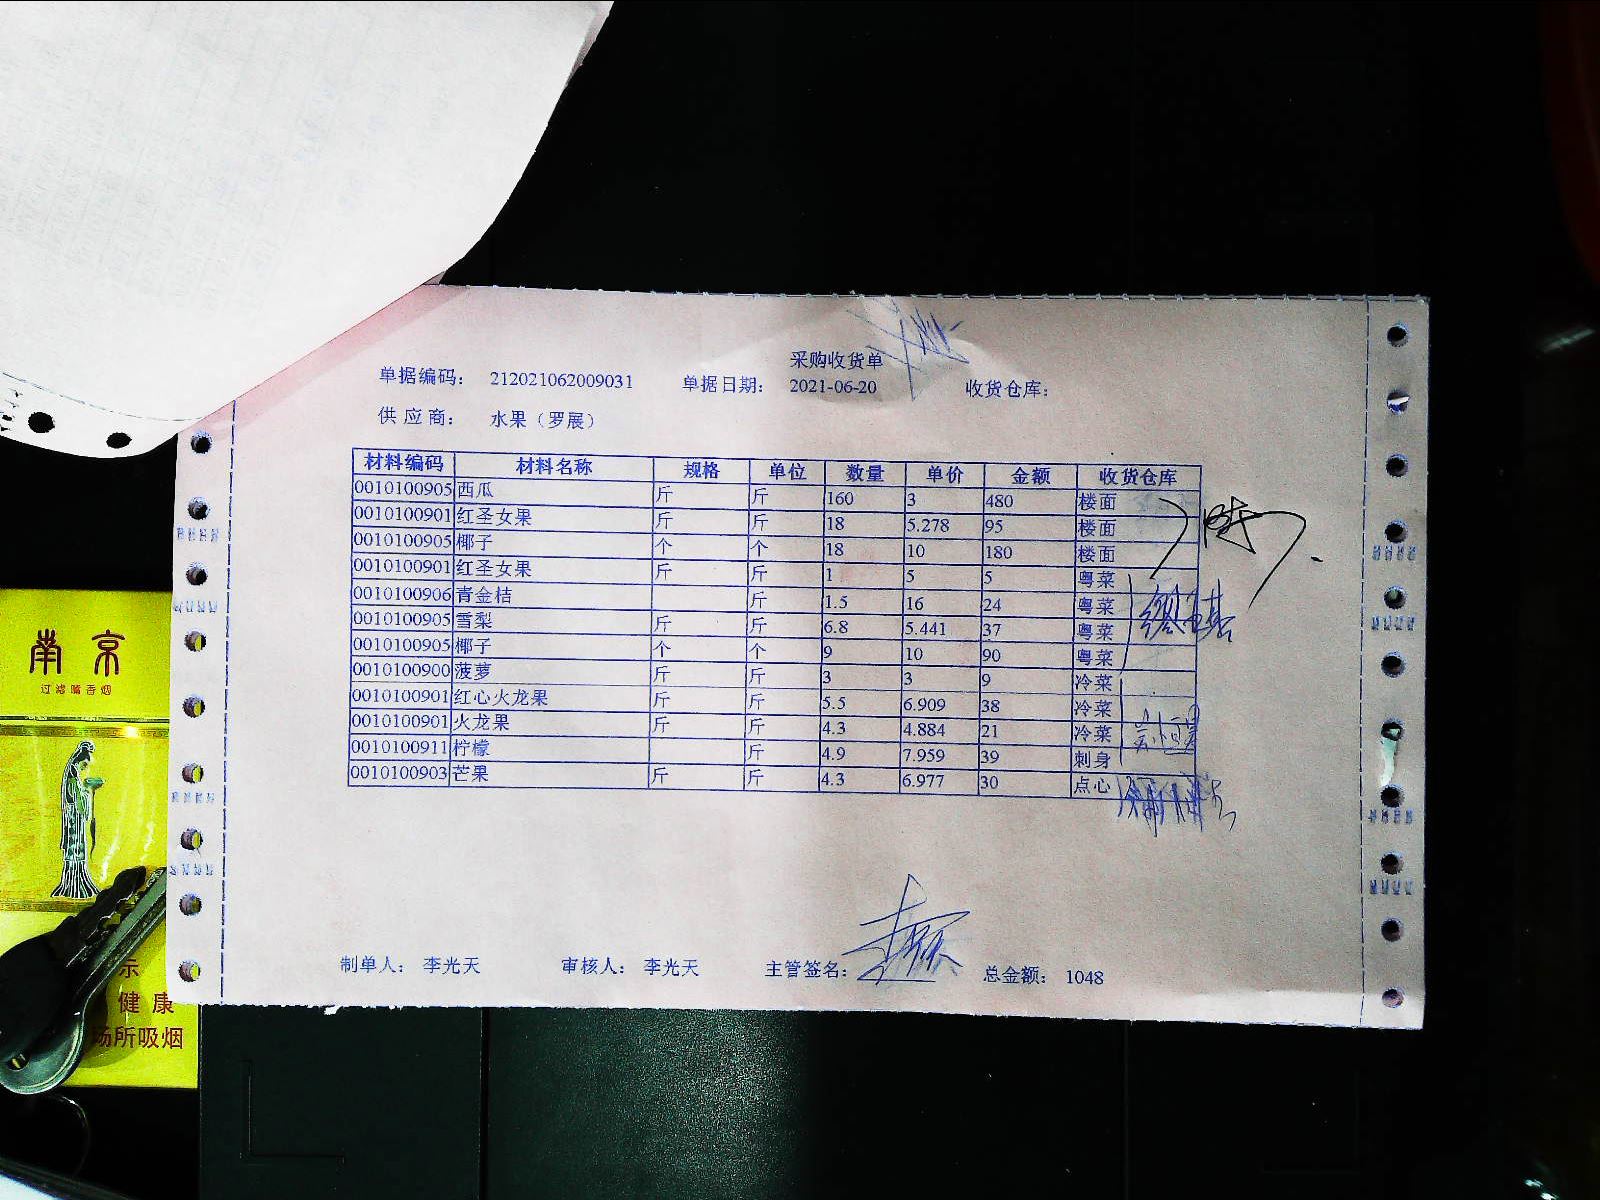 采购收货单
单据编码： 212021062009031 单据日期： 2021-06-20 收货仓库：
供应商： 水果（罗展）
材料编码 材料名称 规格 单位 数量 单价 金额 收货仓库
0010100905 西瓜 斤 斤 160 3 480 楼面
0010100901 红圣女果 斤 斤 18 5.278 95 楼面
0010100905 椰子 个 个 18 10 180 楼面
0010100901 红圣女果 斤 斤 1 5 5 粤菜
0010100906 青金桔 斤 1.5 16 24 粤菜
0010100905 雪梨 斤 斤 6.8 5.441 37 粤菜
0010100905 椰子 个 个 9 10 90 粤菜
0010100900 菠萝 斤 斤 3 3 9 冷菜
0010100901 红心火龙果 斤 斤 5.5 6.909 38 冷菜
0010100901 火龙果 斤 斤 4.3 4.884 21 冷菜
0010100911 柠檬 斤 4.9 7.959 39 刺身
0010100903 芒果 斤 斤 4.3 6.977 30 点心
制单人： 李光天 审核人： 李光天 主管签名： 总金额： 1048
南京
过滤嘴香烟
示
健康
场所吸烟